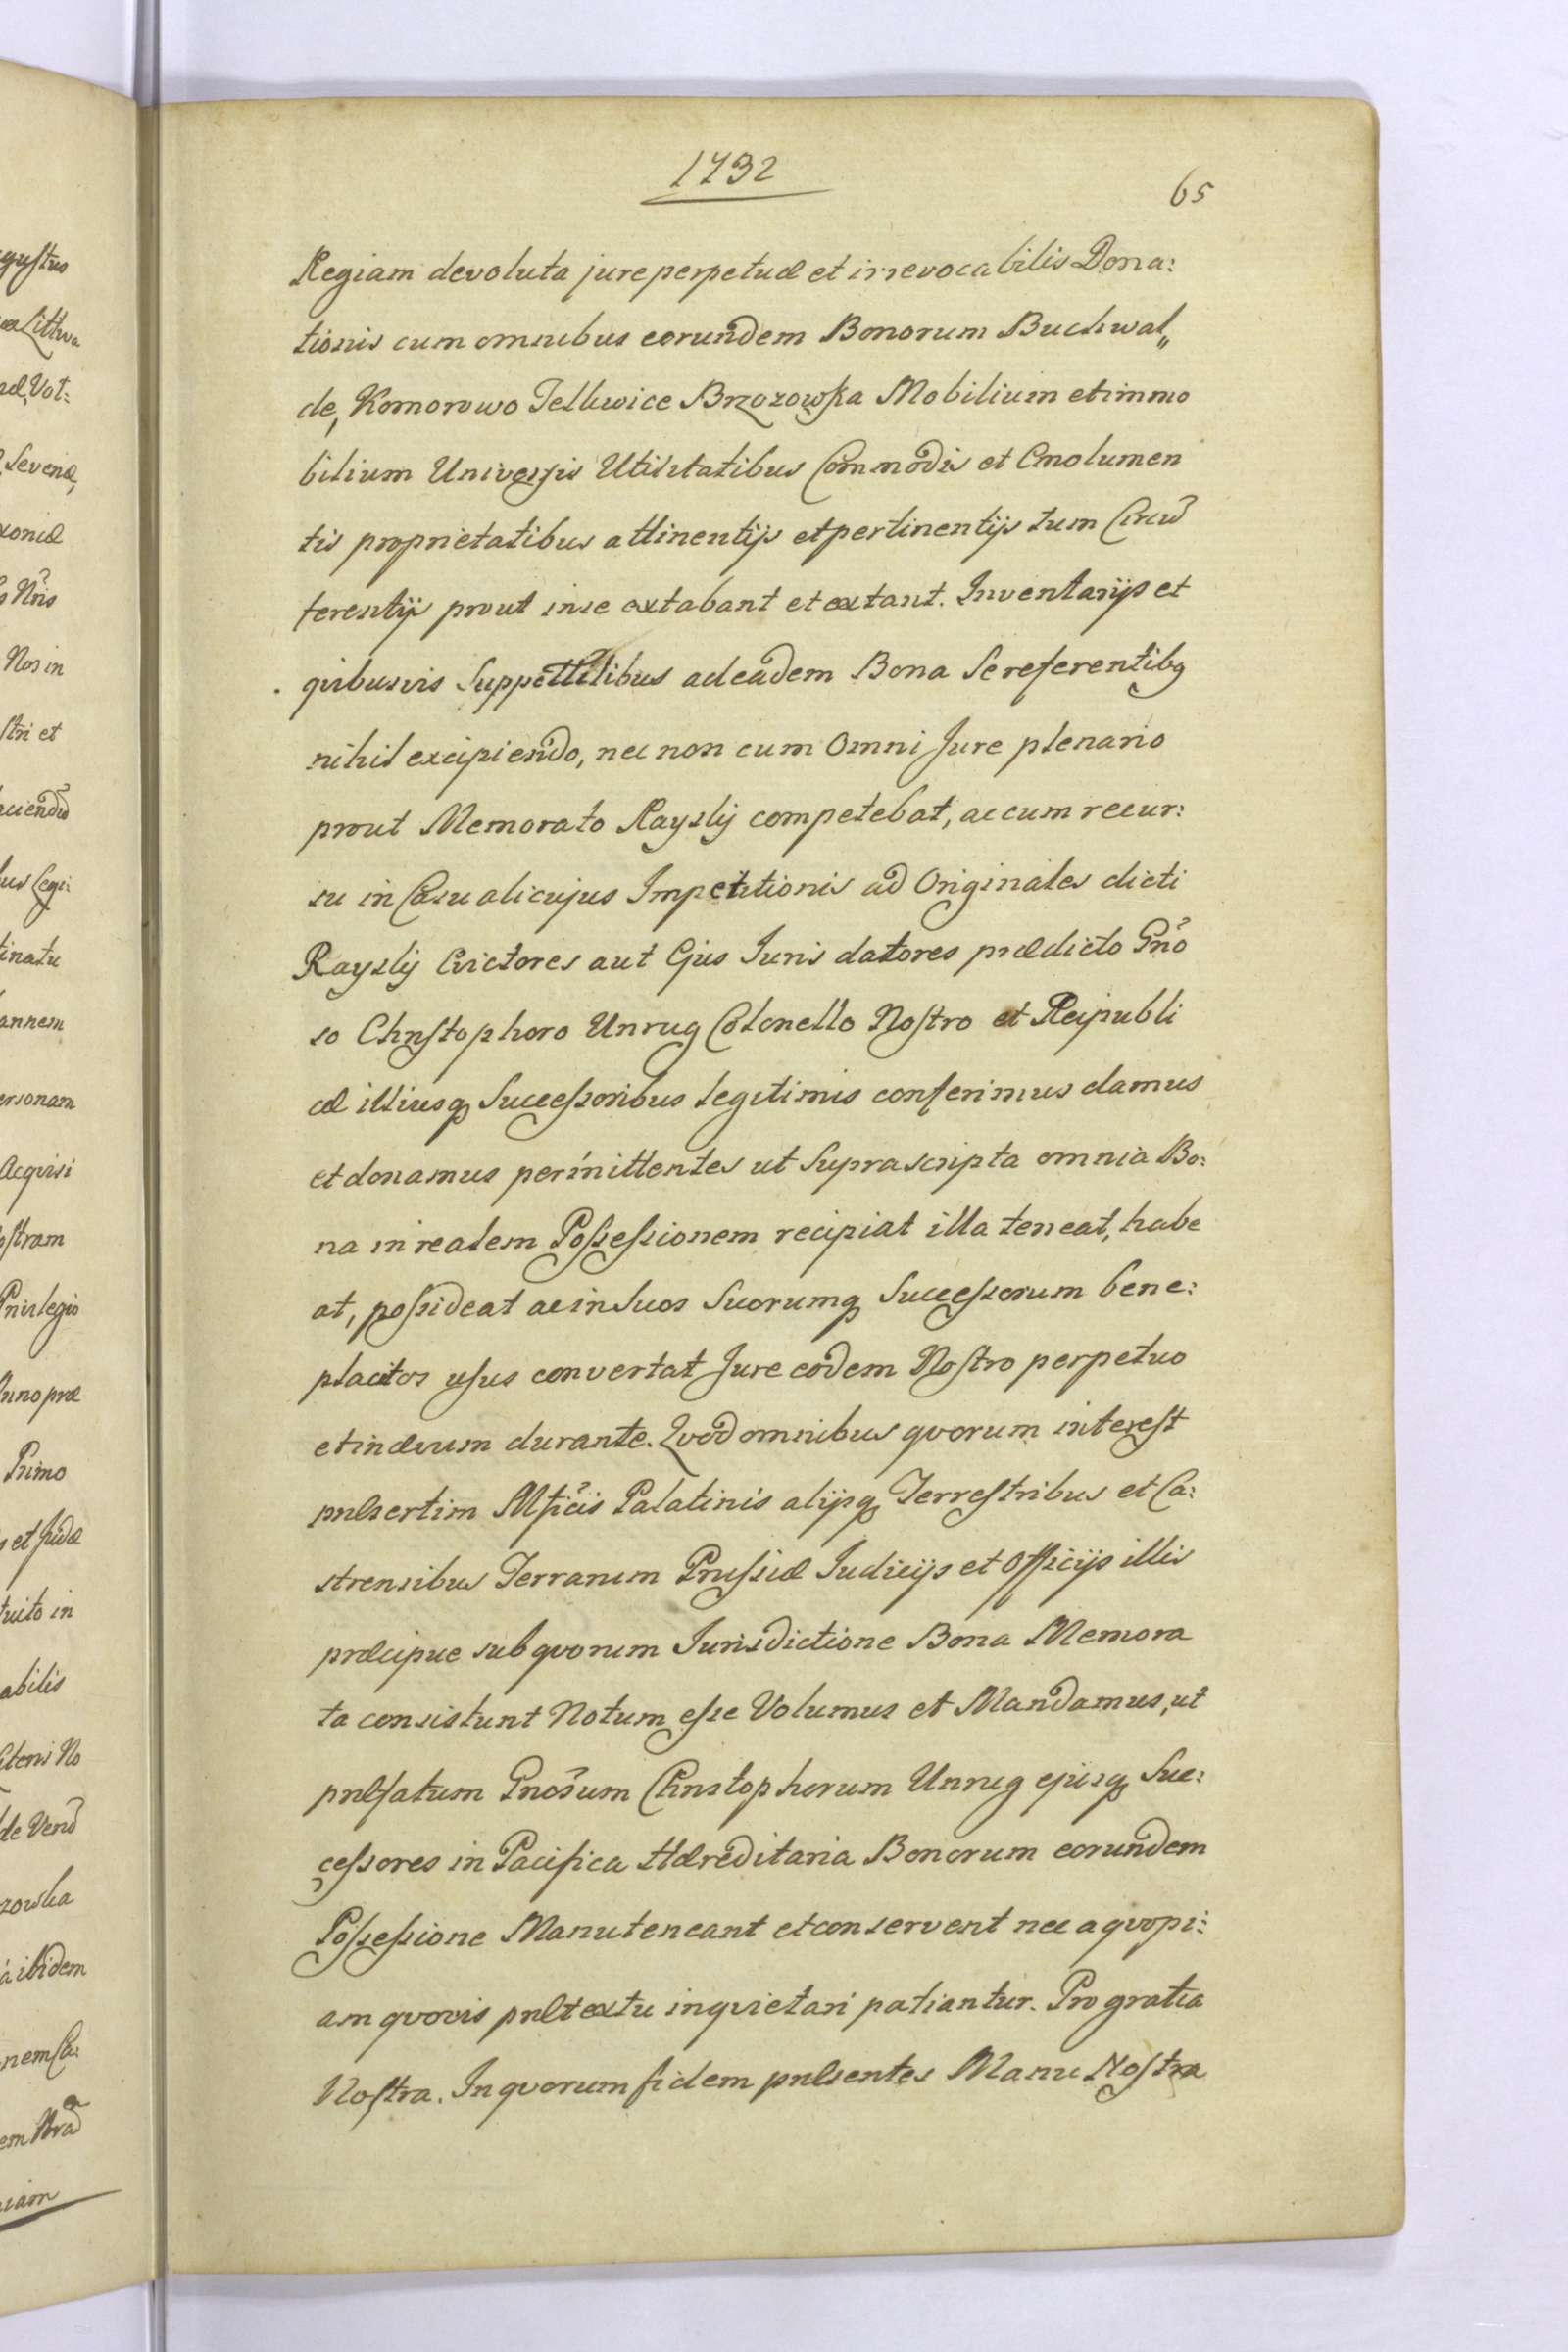 1732
65
Regiam devoluta jure perpetuæ et irrevocabilis Dona:
tionis cum omnibus eorundem Bonorum Buchwal„
de, Komorowo Tellwice Brzozowka Mobilium et immo
bilium Universis Utilitatibus Commodis et Emolumen
tis proprietatibus attinentijs et pertinentijs tum Circu͂
ferentijs prout in se extabant et extant. Inventarijs et
quibusvis Suppettilibus ad eadem Bona Se referentibq
nihil excipiendo, nec non cum Omni Jure plenario
prout Memorato Rayslij competebat, ac cum recur:
su in Casu alicujus Impetitionis ad Originales dicti
Rayslij Evictores aut Ejus Juris datores prædicto Gn͂o
so Christophoro Unrug Colonello Nostro et Reipubli
cæ illiusq Successoribus legitimis conferimus damus
et donamus permittentes ut Suprascripta omnia Bo:
na in realem Possessionem recipiat illa teneat, habe
at, possideat ac in Suos Suorumq Successorum bene:
placitos usus convertat Jure eodem Nostro perpetuo
et in ævum durante. Qvod omnibus qvorum interest
præsertim Mf͂icis Palatinis alijsq Terrestribus et Ca:
strensibus Terrarum Prussiæ Judicijs et Officijs illis
præcipue sub qvorum Jurisdictione Bona Memora
ta consistunt Notum esse Volumus et Mandamus, ut
præfatum Gno͂sum Christophorum Unrug ejusq Suc:
cessores in Pacifica Hæreditaria Bonorum eorundem
Possessione Manuteneant et conservent nec a qvopi:
am qvovis prætextu inqvietari patiantur. Pro gratia
Nostra. In qvorum fidem præsentes Manu Nostra